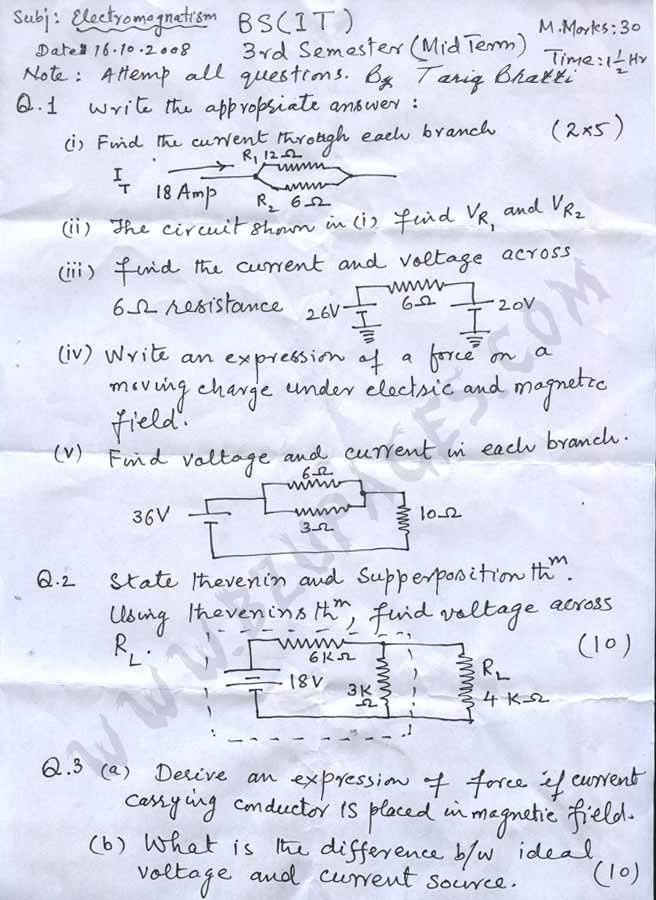 Subj: Electromagnatism BS(IT) M.Marks: 30
Date: 16.10.2008 3rd Semester (Mid Term) Time: 1 1/2 Hr
Note: Attemp all questions. By Tariq Bhatti
Q.1 Write the appropriate answer:
(i) Find the current through each branch (2x5)
I_T 18 Amp R_1 12Ω R_2 6Ω
(ii) The circuit shown in (i) find V_R1 and V_R2
(iii) find the current and voltage across
6Ω resistance 26V 6Ω 20V
(iv) Write an expression of a force on a
moving charge under electric and magnetic
field.
(v) Find voltage and current in each branch.
36V 6Ω 3Ω 10Ω
Q.2 State thevenin and Supperposition th^m.
Using thevenins th^m, find voltage across
R_L. (10)
6KΩ 18V 3KΩ R_L 4KΩ
Q.3 (a) Derive an expression of force if current
carrying conductor is placed in magnetic field.
(b) What is the difference b/w ideal
voltage and current source. (10)
WWW.BZUPAGES.COM